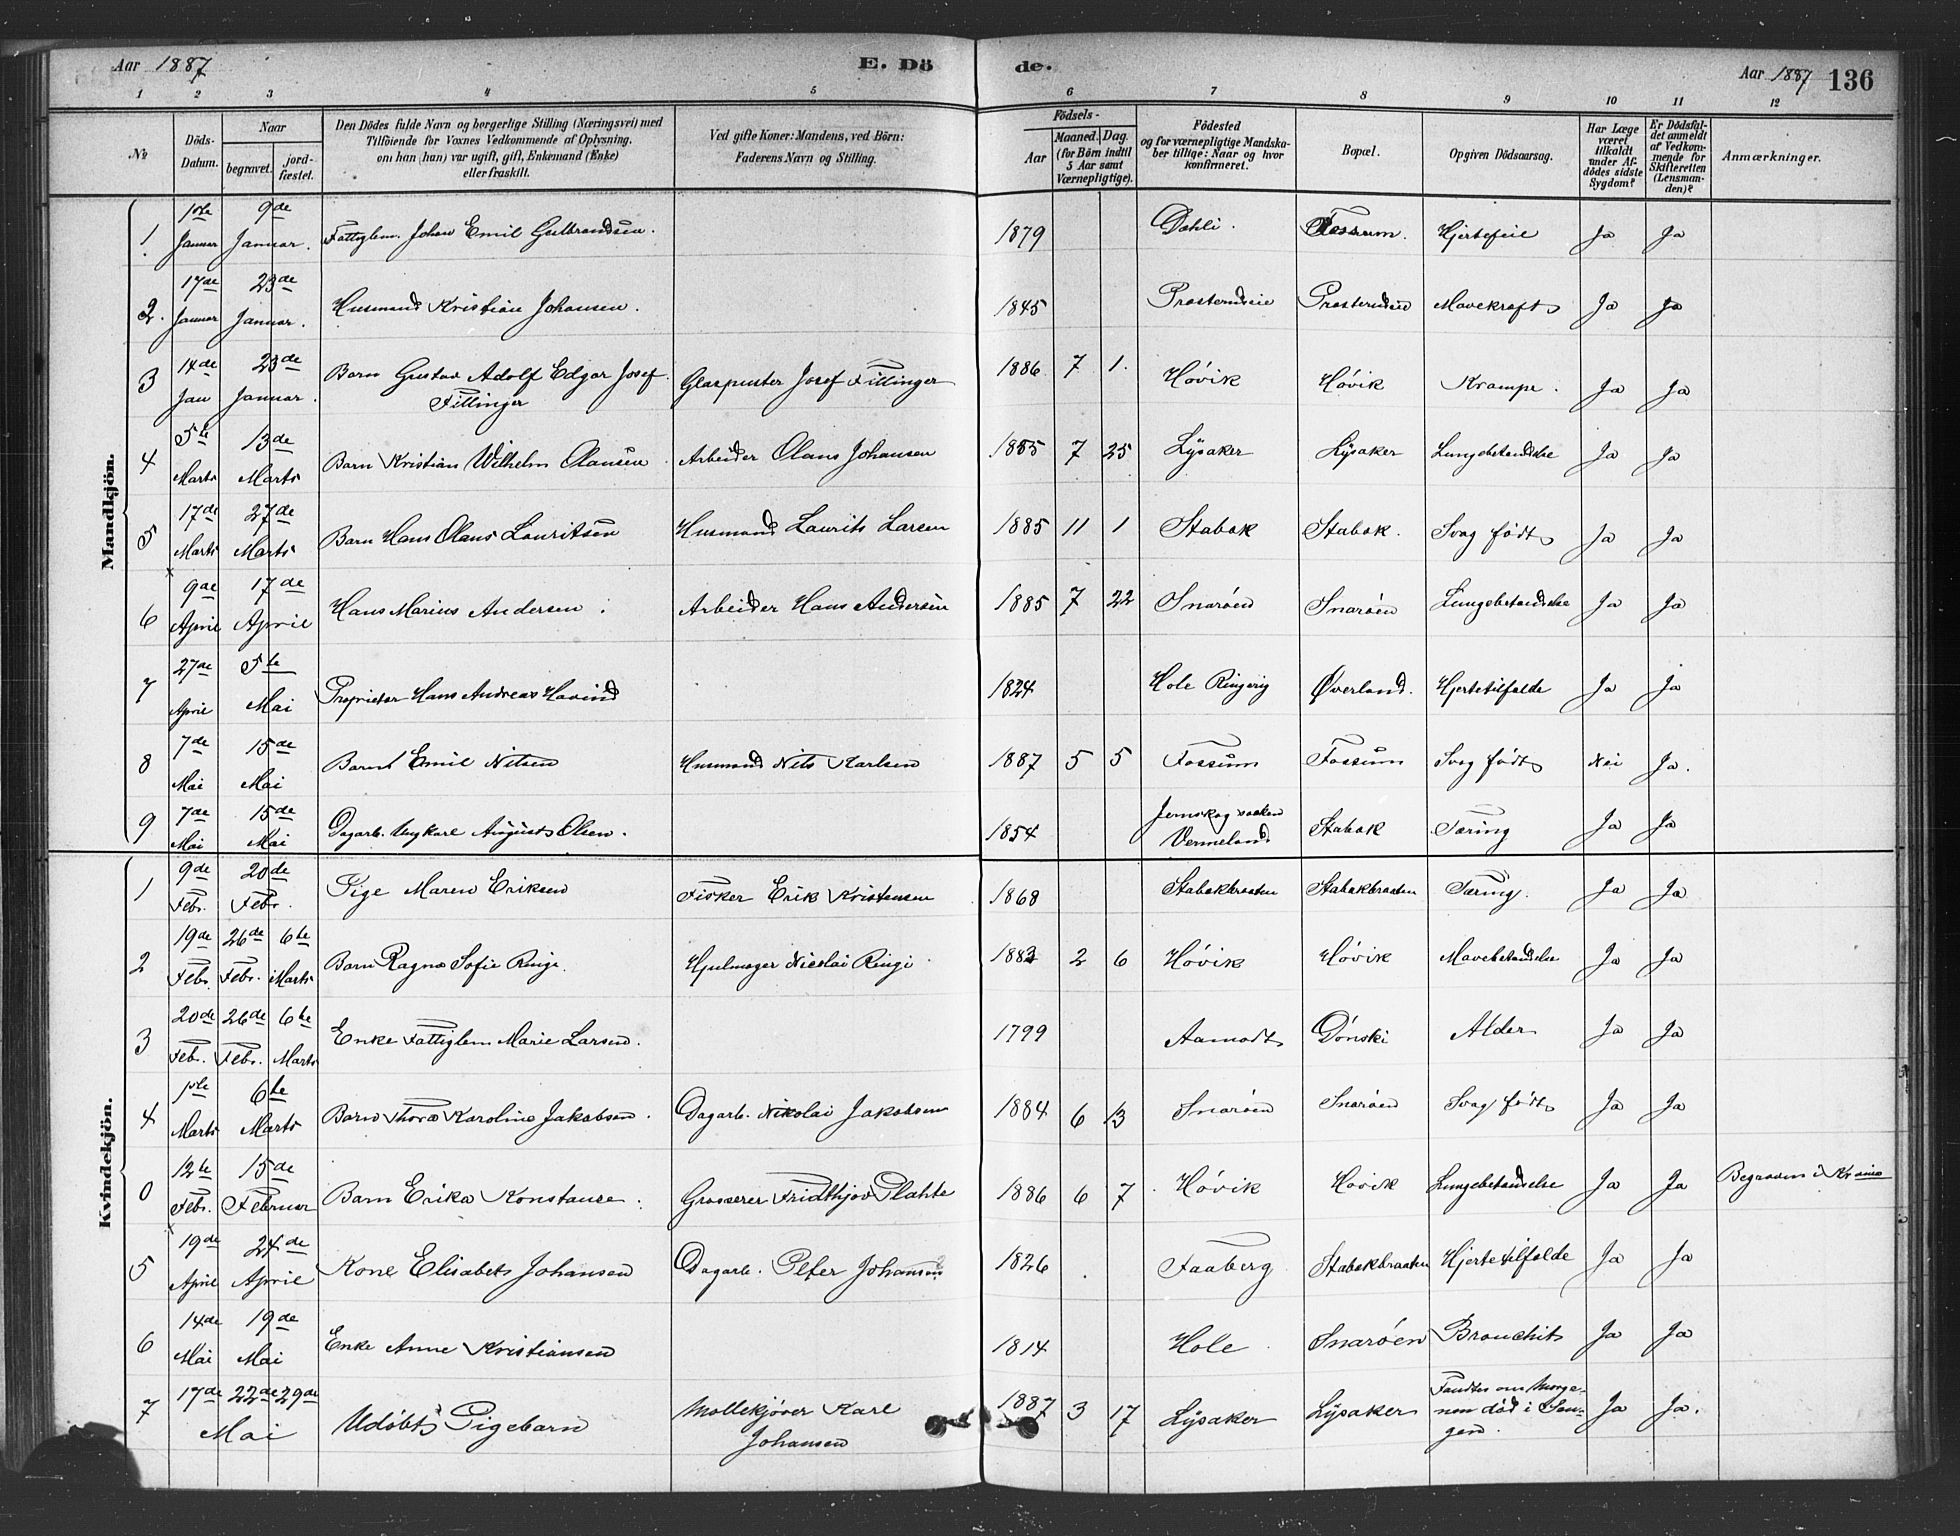 Aar 1887 E. Dö de. Aar 1887 136
1 2 3 4 5 6 7 8 9 10 11 12
№ Döds-Datum. Naar begravet. jord-fæstet. Den Dödes fulde Navn og borgerlige Stilling (Næringsvei) med Tilföiende for Voxnes Vedkommende af Oplysning. om han (hun) var ugift, gift, Enkemand (Enke) eller fraskilt. Ved gifte Koner: Mandens, ved Börn: Faderens Navn og Stilling. Födsels- Aar Maaned. Dag. (for Börn indtil 5 Aar samt Værnepligtige). Födested og for værnepligtige Mandska-ber tillige: Naar og hvor konfirmeret. Bopæl. Opgiven Dödsaarsag. Har Læge været tilkaldt under Af-dödes sidste Sygdom? Er Dödsfal-det anmeldt af Vedkom-mende for Skifteretten (Lensman-den)? Anmærkninger.
Mandkjön.
1 1ste Januar 9de Januar. Fattiglem. Johan Emil Gulbrandsen. 1879 Dæhli. Fossum. Hjertefeil Ja Ja
2. 17de Januar 23de Januar. Husmand Kristian Johansen. 1845 Prosterudeie Prosterudeie Mavekræft Ja Ja
3 14de Jan 23de Januar. Barn Gustav Adolf Edgar Josef Fillinger Glaspuster Josef Fillinger 1886 7 1. Hóvik Hóvik Krampe. Ja Ja
4 5te Marts 13de Marts Barn Kristian Wilhelm Olausen Arbeider Olaus Johansen 1885 7 25 Lysaker Lysaker Lungebetændelse Ja Ja
5 17de Marts 27de Marts Barn Hans Olaus Lauritsen Husmand Laurits Larsen 1885 11 1 Stabæk Stabæk. Svag født Ja Ja
6 9de April 17de April Hans Marius Andersen Arbeider Hans Andersen 1885 7 22 Snarøen Snarøen Lungebetændelse Ja Ja
7 27de April 5te Mai Proprietær Hans Andreas Havind 1824 Hole Ringerig Øverland. Hjertetilfælde Ja Ja
8 7de Mai 15de Mai Barnet Emil Nilsen Husmand Nils Karlsen 1887 5 5 Fossum Fossum Svag født Nei Ja.
9 7de Mai 15de Mai Dagarb. Ungkarl August Olsen. 1854 Jernskog sokken Vermeland Stabæk Tæring Ja Ja
Kvindekjön.
1 9de Febr. 20de Febr. Pige Maren Eriksen Fisker Erik Kristensen 1868 Stabækbraaten Stabækbraaten Tæring. Ja Ja
2 19de Febr. 26de Febr. 6te Marts Barn Ragna Sofie Ringi. Hjulmager Nicolai Ringi 1883 2 6 Hóvik Hóvik Mavebetændelse Ja Ja
3 20de Febr. 26de Febr. 6te Marts Enke Fattiglem Marie Larsen. 1799 Aamodt Dønski Alder Ja Ja
4 1ste Marts 6te Marts Barn Thora Karoline Jakobsen. Dagarb. Nikolai Jakobsen 1884 6 13 Snarøen Snarøen Svag født Ja Ja
0 12te Febr. 15de Februar Barn Erika Konstanse. Grosserer Fridthjov Plahte 1886 6 7 Hóvik Hóvik Lungebetændelse Ja Ja Begraven i Krania
5 19de April 24de April Kone Elisabet Johansen Dagarb. Peter Johansen 1826 Faaberg Stabækbraaten Hjertetilfælde Ja Ja
6 14de Mai 19de Mai Enke Anne Kristiansen 1814 Hole Snarøen Bronchit Ja Ja
7 17de 22de 29de Mai Udøbt Pigebarn Møllekjører Karl Johansen 1887 3 17 Lysaker Lysaker Fandtes om Morge-nen død i Sen-gen. Ja Ja.